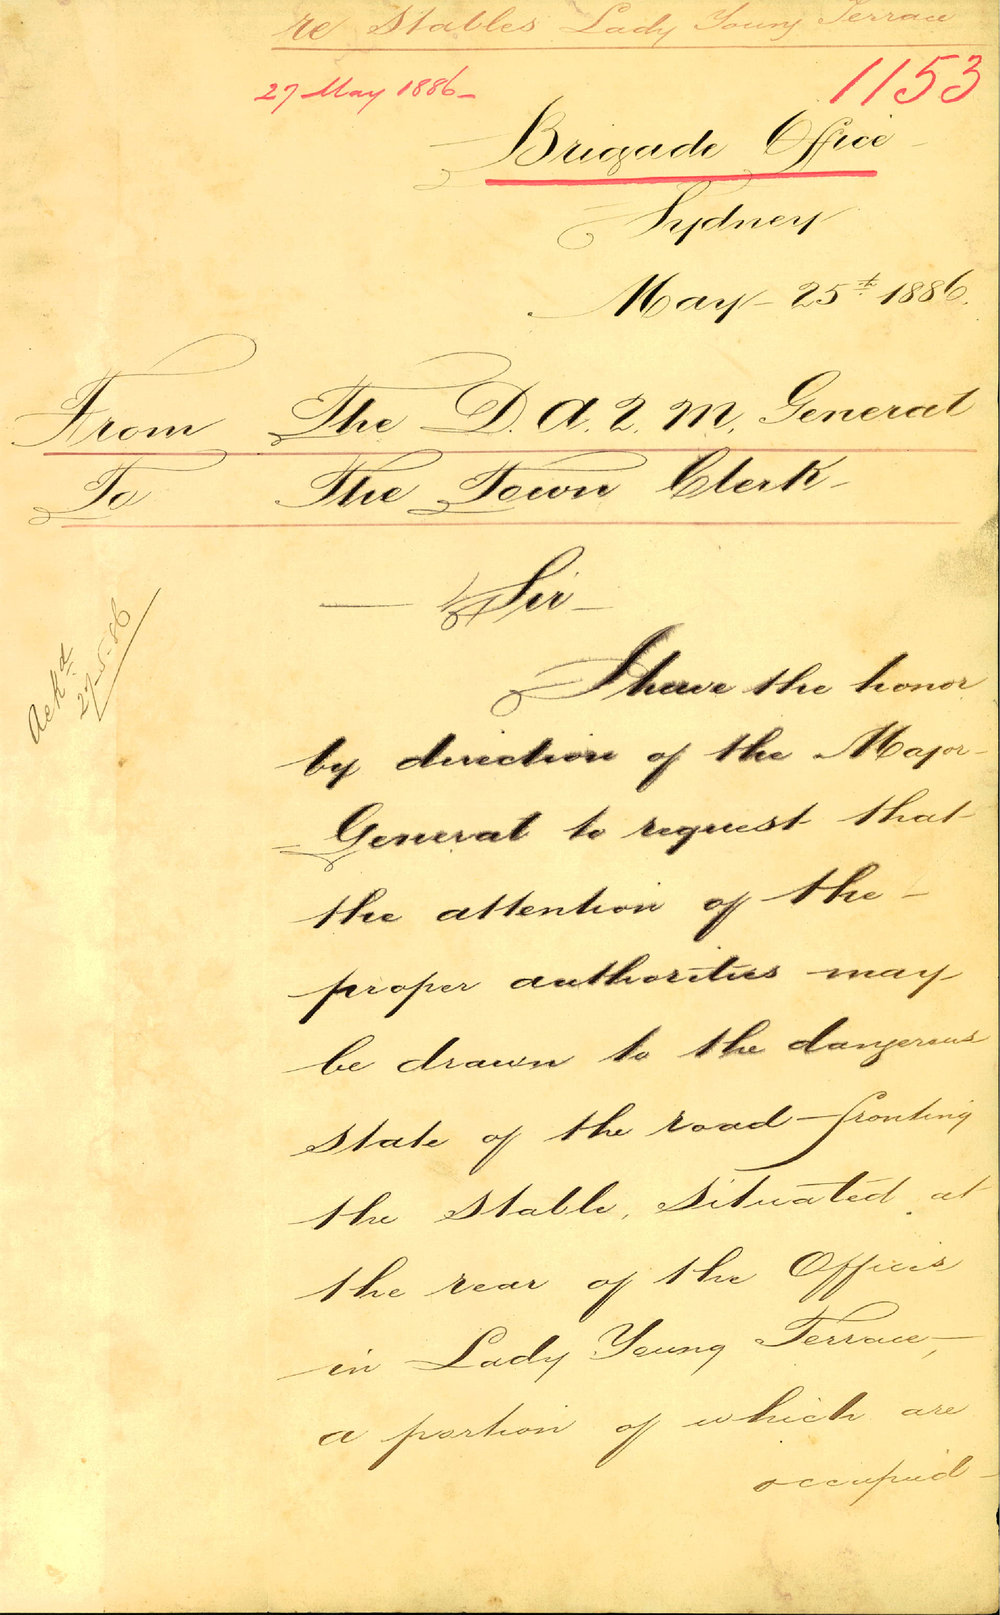 re Stables Lady Young Terrace
27 May 1886-
1153
Brigade Office -
Sydney
May - 25th 1886.
From The D. A. Q. M. General
To The Town Clerk -
Ackd
27-5-86
Sir -
I have the honor
by direction of the Major-
General to request that
the attention of the -
proper authorities may
be drawn to the dangerous
state of the road - fronting
the stable, situated at
the rear of the Offices
in Lady Young Terrace,
a portion of which are
occupied -